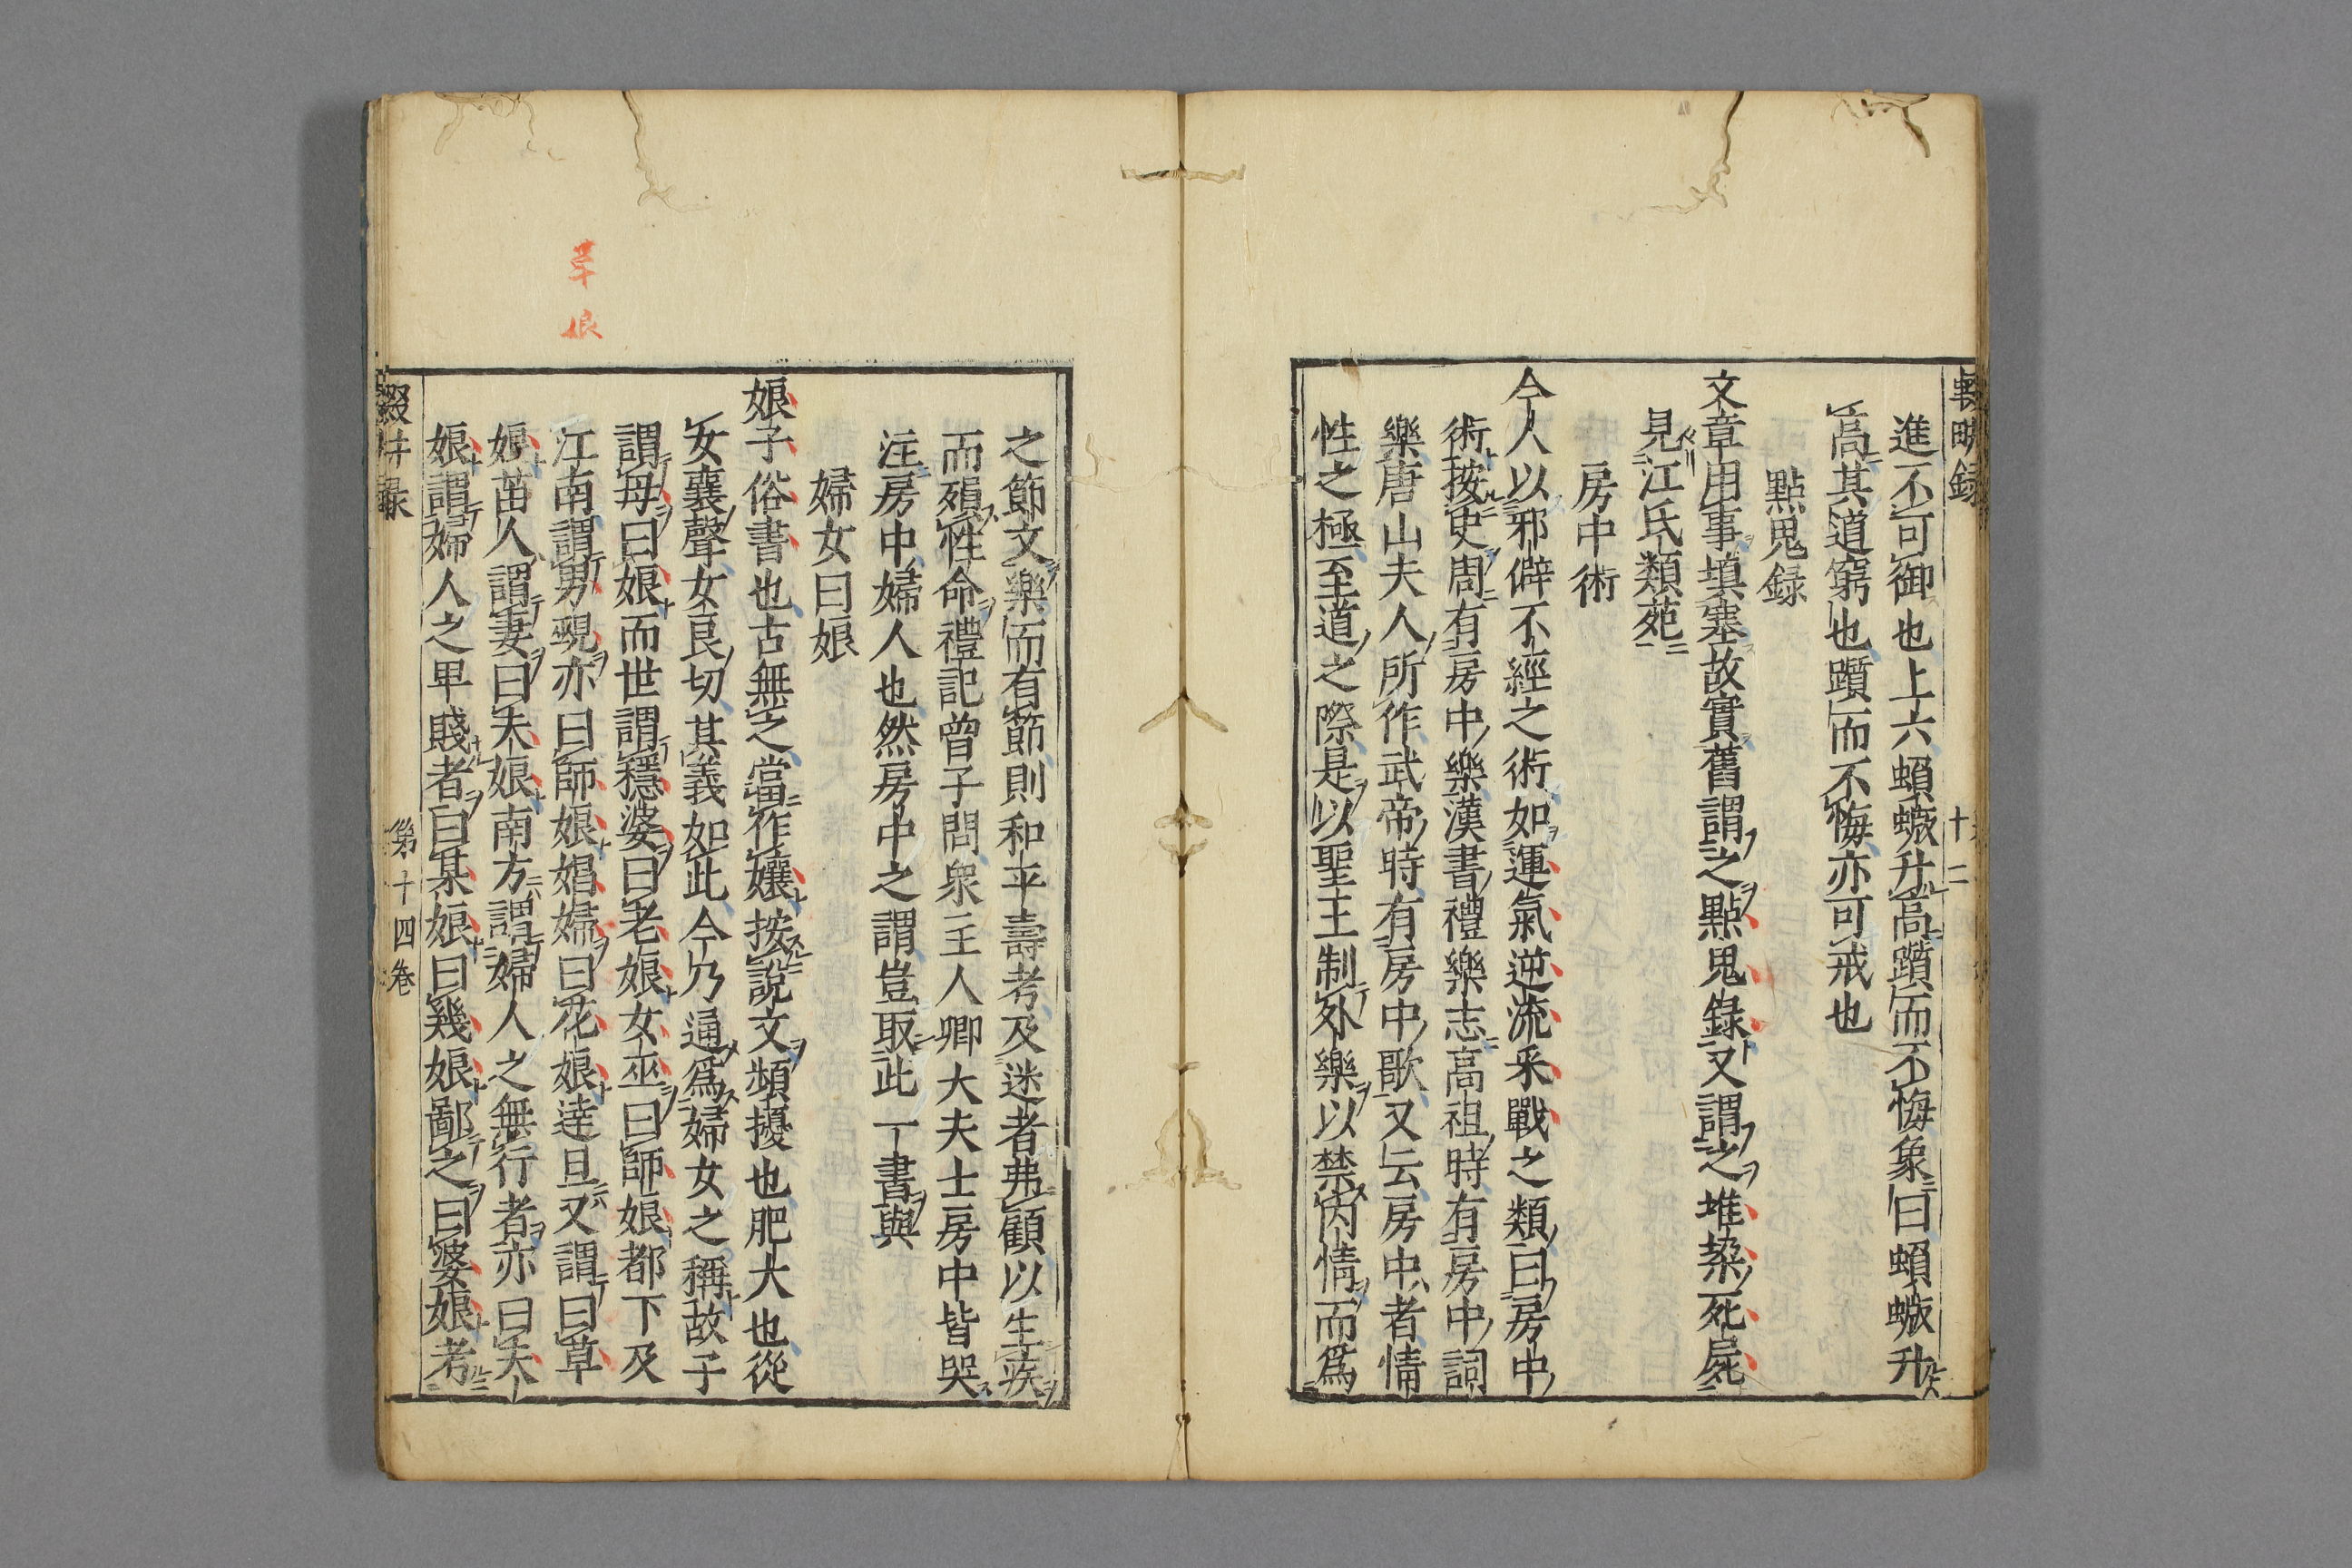 進不可御也上六蝢蠍升高躓而不悔象曰蝢蠍升
高其道窮也躓而不悔亦可戒也
點鬼録
文章用事填塞故實舊謂之點鬼錄又謂之堆垜死屍
見江氏類苑
房中術
今人以邪僻不經之術如運氣逆流采戰之類曰房中
術按史周有房中樂漢書禮樂志高祖時有房中詞
樂唐山夫人所作武帝時有房中歌又云房中者情
性之極至道之際是以聖王制外樂以禁内情而爲
十二
之節文樂而有節則和平壽考及迷者弗顧以生疾
而殞性命禮記曾子問衆主人卿大夫士房中皆哭
注房中婦人也然房中之謂豈取此丁書與
婦女曰娘
娘子俗書也古無之當作孃按說文煩擾也肥大也從
女襄聲女良切其義如此今乃通爲婦女之稱故子
謂母曰娘而世謂穩婆曰老娘女巫曰師娘都下及
江南謂男覡亦曰師娘娼婦曰花娘達旦又謂曰草
娘苗人謂妻曰夫娘南方謂婦人之無行者亦曰夫
娘謂婦人之卑賤者曰某娘曰幾娘鄙之曰婆娘考
輟耕录
第十四卷
草娘